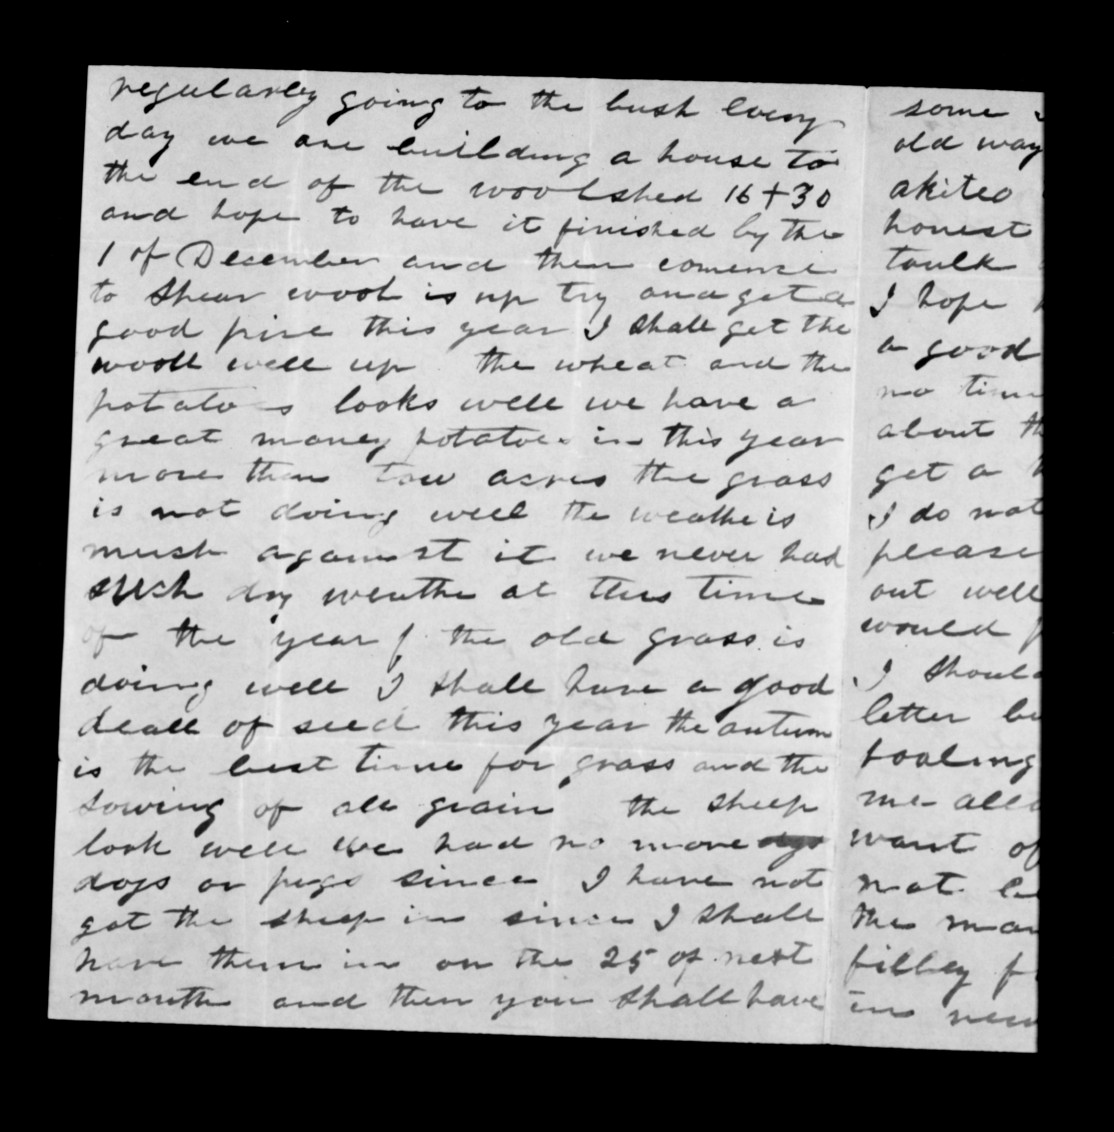 regularley going to the bush Every
day we are building a house to
the end of the woolshed 16 + 30
and hope to have it finished by the
1 of December and then comence
to Shear wool is up try and get a
good pire this year I shall get the
wooll well up the wheat and the
potatoes looks well we have a
great money potatoes in this year
more then tow acres the grass
is not doing well the weathe is
much against it we never had
such dry weuthe at this time
of the year the old grass is
doing well I shall have a good
deall of seed this year the autum
is the best time for grass and the
sowing of all grain the sheep
look well we had no more dgs
dogs or pigs since I have not
got the sheep in since I shall
have them in on the 25 of next
month and then you shall have
some
old way
akiteo
honest
taulk
I hope
a good
no tim
about th
get a
I do not
please
out well
would
I should
letter be
foaling
me all
want of
not be
the man
filley f
ins new